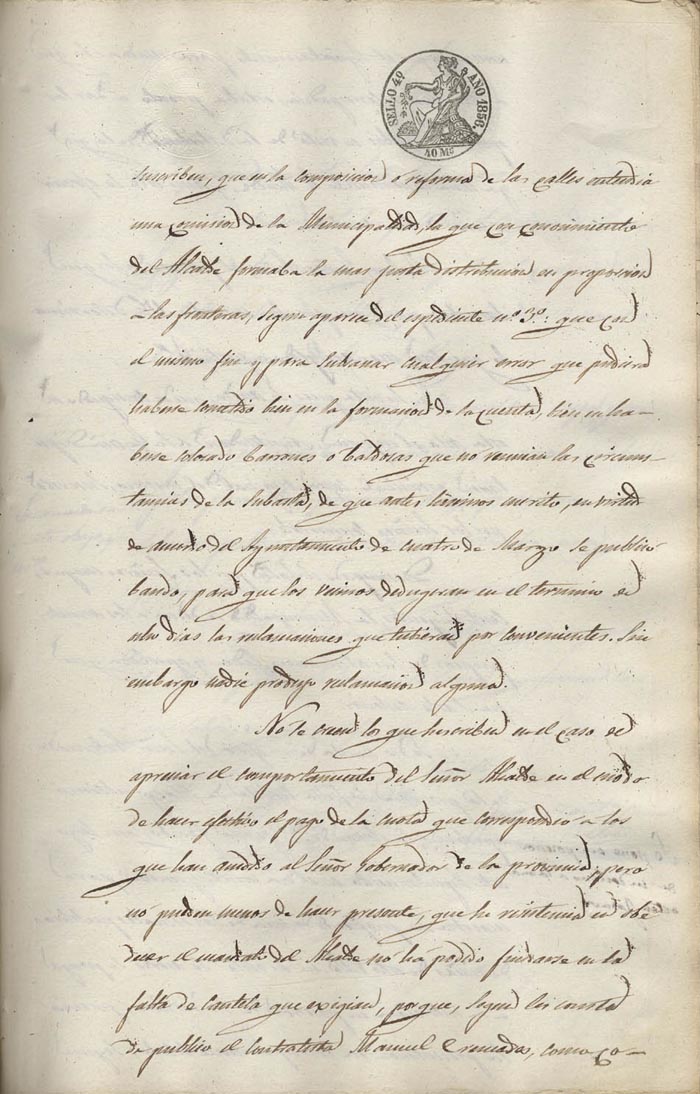 SELLO 4º AÑO 1856.
40 Ms
suscriben, que en la composicion o reforma de las calles entendia
una comision de la Municipalidad, la que con conocimiento
del Alcalde formaba la mas justa distribucion en proporcion
a las fronteras, segun aparece del espediente nº 3º: que con
el mismo fin y para subsanar cualquier error que pudiera
haberse cometido bien en la formacion de la cuenta, bien en ha-
berse colocado barrones o baldosas que no reunian las circuns-
tancias de la subasta, de que antes hicimos merito, en virtud
de acuerdo del Ayuntamiento de cuatro de Marzo se publicó
bando, para que los vecinos dedugeran en el termino de
ocho dias las reclamaciones que tubieran por convenientes. Sin
embargo nadie produjo reclamacion alguna.
No se creen los que suscriben en el caso de
apreciar el comportamiento del Señor Alcalde en el modo
de hacer efectivo el pago de la cuota que correspondió a los
que han acudido al Señor Gobernador de la provincia, pero
no pueden menos de hacer presente, que la resistencia en obe-
decer el mandato del Alcalde no ha podido fundarse en la
falta de cautela que exigian, porque, segun les consta
de publico el contratista Manuel como co-